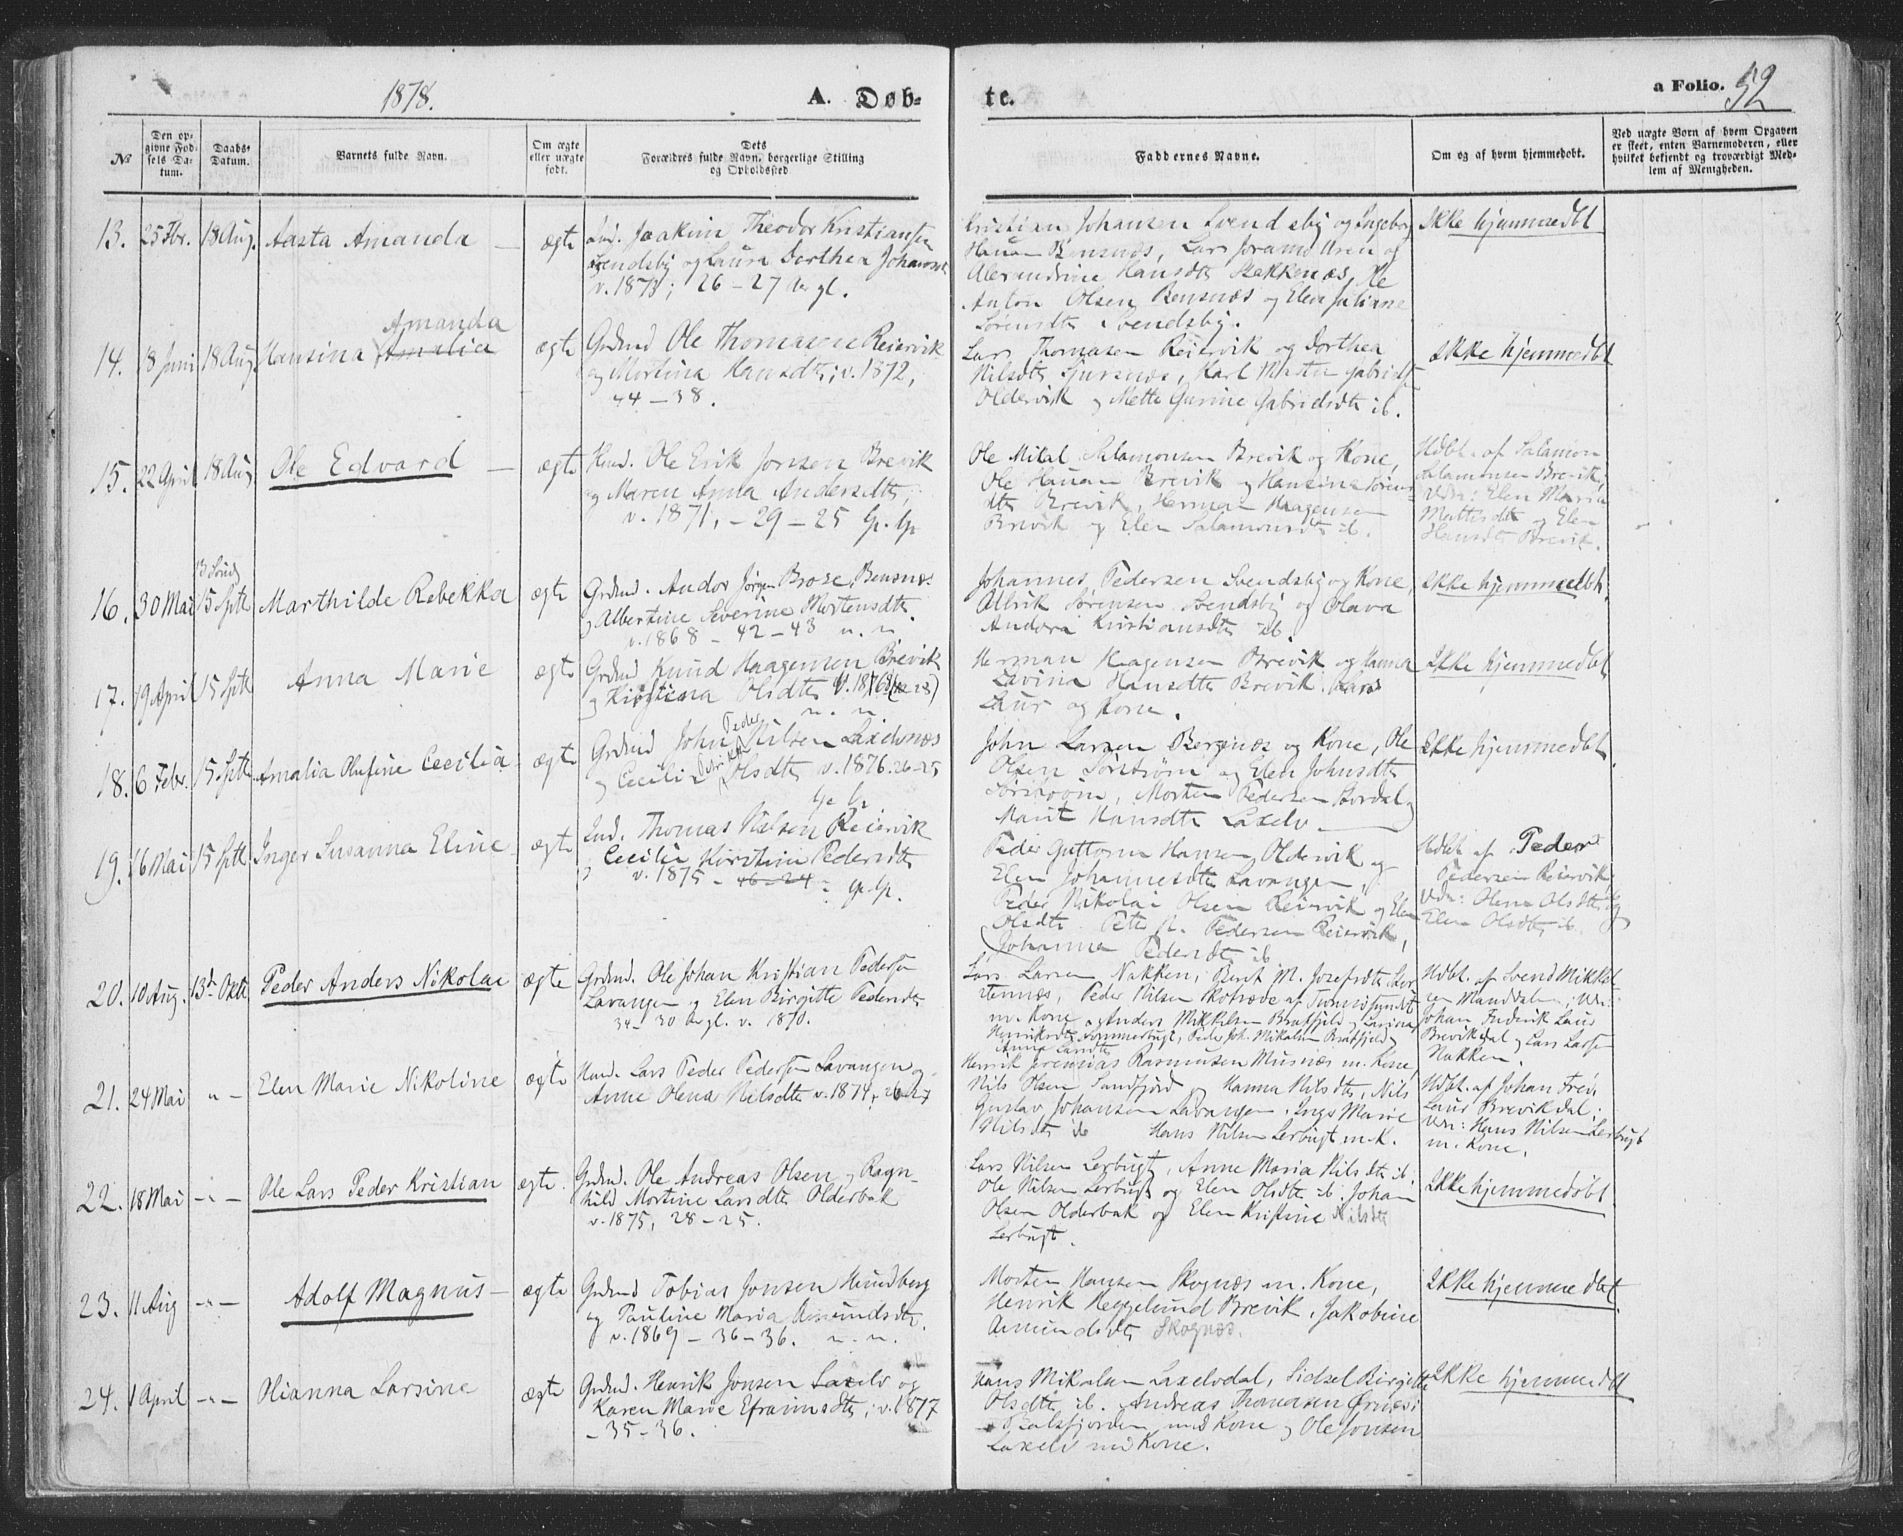 1878.
A. Døb-
te.
a Folio. 52
No
Den op-
givne Fød-
sels Da-
tum.
Daabs-
Datum.
Barnets fulde Navn.
Om ægte
eller uægte
født.
Dets
Forældres fulde Navn, borgerlige Stilling
og Opholdssted
Faddernes Navne.
Om og af hvem hjemmedøbt.
Ved uægte Børn af hvem Opgaven
er skeet, enten Barnemoderen, eller
hvilket bekjendt og troværdigt Med-
lem af Menigheden.
13. 25 Fbr. 18 Aug. Aasta Amanda — ægte
Ind. Joakim Theodor Kristiansen
Svendsby og Laura Dorthea Johansd
v. 1878; 26–27
Kristian Johansen Svendsby og Ingeborg
Hansen Bensnæs, Lars
Alexandrine Hansdtr Stakkenæs, Ole
Anton Olsen Bensnæs og Elen Juliane
Sørensdtr Svendsby.
Ikke hjemmedbt
14. 18 Juni 18 Aug Hansina Amalia
Amanda
ægte
Grdmd Ole Thomasen Reiervik
og Mortina Hansdtr; v. 1872,
44–38.
Lars Thomasen Reiervik og Dorthea
Nilsdtr Sjursnæs, Karl Martin Gabrielss
Oldervik og Mette Gurine Gabrielsdtr ib.
Ikke hjemmedbt
15. 22 April 18 Aug Ole Edvard — ægte
Hmd. Ole Erik Jonsen Brevik
og Maren Anna Andersdtr;
v. 1871, – 29 – 25 Gp. Gp
Ole Mikal Salamonsen Brevik og Kone,
Ole Hansen Brevik og Hansina Sørens-
dtr Brevik, Herman Haagensen
Brevik og Elen Salamonsdtr ib.
Hdbt. af Salamon
Salamonsen Brevik,
Vdn: Elen Maria
Mattisdtr og Elen
Hansdtr Brevik.
16. 30 Mai 15 Sptb Marthilde Rebekka ægte
Grdmd. Andor Jørgen Brose, Bensnæs
og Albertine Severine Mortensdtr
v. 1868 – 42–43 n. n.
Johannes Pedersen Svendsby og Kone,
Albrik Sørensen Svendsby og Olava
Andora Kristiansdtr ib.
Ikke hjemmedbt.
17. 19 April 15 Sptb Anna Marie ægte
Grdmd Knud Haagensen Brevik
og Kirstina Olsdtr v. 1876
n. n
Herman Haagensen Brevik og Hanna
Lavina Hansdtr Brevik. Lars
Laur og Kone.
Ikke hjemmedbt
18. 6 Febr. 15 Sptb Amalia Olufine Cecilia ægte
Grdmd John Peder Nilsen Laxelvnæs
og Cecilie Olsdtr v. 1876. 26–25
Gp Gp
John Larsen Bergenæs og Kone, Ole
Olsen Sørstrøm og Elen Johnsdtr
Sørstrøm, Morten Pedersen Stordal og
Marit Hansdtr Laxelv
Ikke hjemmedbt.
19. 16 Mai 15 Sptb Inger Susanna Eline ægte
Ind. Thomas Nilsen Reiervik
og Cecilie Kirstine Pedersdtr
v. 1875 – 46–24 – Gp. Gp.
Peder Guttorm Hansen Oldervik og
Elen Johannesdtr Lavangen,
Peder Nikolai Olsen Reiervik og Elen
Olsdtr. Peter A. Pedersen Reiervik,
Johanna Pedersdtr ib
Hdbt af Peder
Pedersen Reiervik
Vdn: Olena Olsdtr og
Elen Olsdtr ib.
20. 10 Aug. 13d Okt. Peder Anders Nikolai ægte
Grdmd. Ole Johan Kristian Pedersen
Lavangen og Elen Birgitte Pedersdtr
34–30 v. 1870.
Lars Larsen Nakken, Berit M. Josefsdtr
Peder Nilsen af Tromsøsundet
m. Kone og Anders Mikkelsen Bratfjeld og Lavina
Henriksdtr Sommerbugt, Peder Joh. Mikalsen Bratfjeld og
Anna Larsdtr
Hdbt. af Svend Mikkel-
sen Manddalen; Vdn:
Johan Fredrik Laur
Breviksdal og Lars Larsen
Nakken.
21. 24 Mai " – Elen Marie Nikoline ægte
Hmd. Lars Peder Pedersen Lavangen og
Anne Olena Nilsdtr v. 1874, 26–27
Henrik Jeremias Rasmusen Musnæs m. Kone,
Nils Olsen Sandfjord og Hanna Nilsdtr, Nils
Gustav Johansen Lavangen. Inga Marie
Nilsdtr ib Hans Nilsen Lerbugt m. K.
Hdbt. af Johan Fredr
Laur Brevikdal;
Vdn: Hans Nilsen Lerbugt
m. Kone.
22. 18 Mai –"– Ole Lars Peder Kristian ægte
Grdmd. Ole Andreas Olsen og Ragn-
hild Mortine Larsdtr Olderbak
v. 1875, 28–25.
Lars Nilsen Lerbugt, Anne Maria Nilsdtr ib.
Ole Nilsen Lerbugt og Elen Olsdtr ib. Johan
Olsen Olderbak og Elen Kristine Nilsdtr
Lerbugt.
Ikke hjemmedøbt
23. 11 Aug –"– Adolf Magnus – ægte
Grdmd Tobias Jonsen Hundberg
og Pauline Maria Amundsdtr.
v. 1869 – 36–36. n. n.
Morten Hansen Skognæs m. Kone,
Henrik Heggelund Brevik, Jakobine
Amundsdtr Skognæs.
Ikke hjemmedbt
24. 1 April –"– Olianna Larsine ægte
Grdmd. Henrik Jonsen Laxelv og
Karen Marie Efraimsdtr; v. 1877
– 35–36.
Hans Mikalsen Laxelvdal, Sidsel Birgitte
Olsdtr ib. Andreas Thomasen Ørnæs i
Balsfjorden med Kone og Ole Jonsen
Laxelv med Kone.
Ikke hjemmedbt